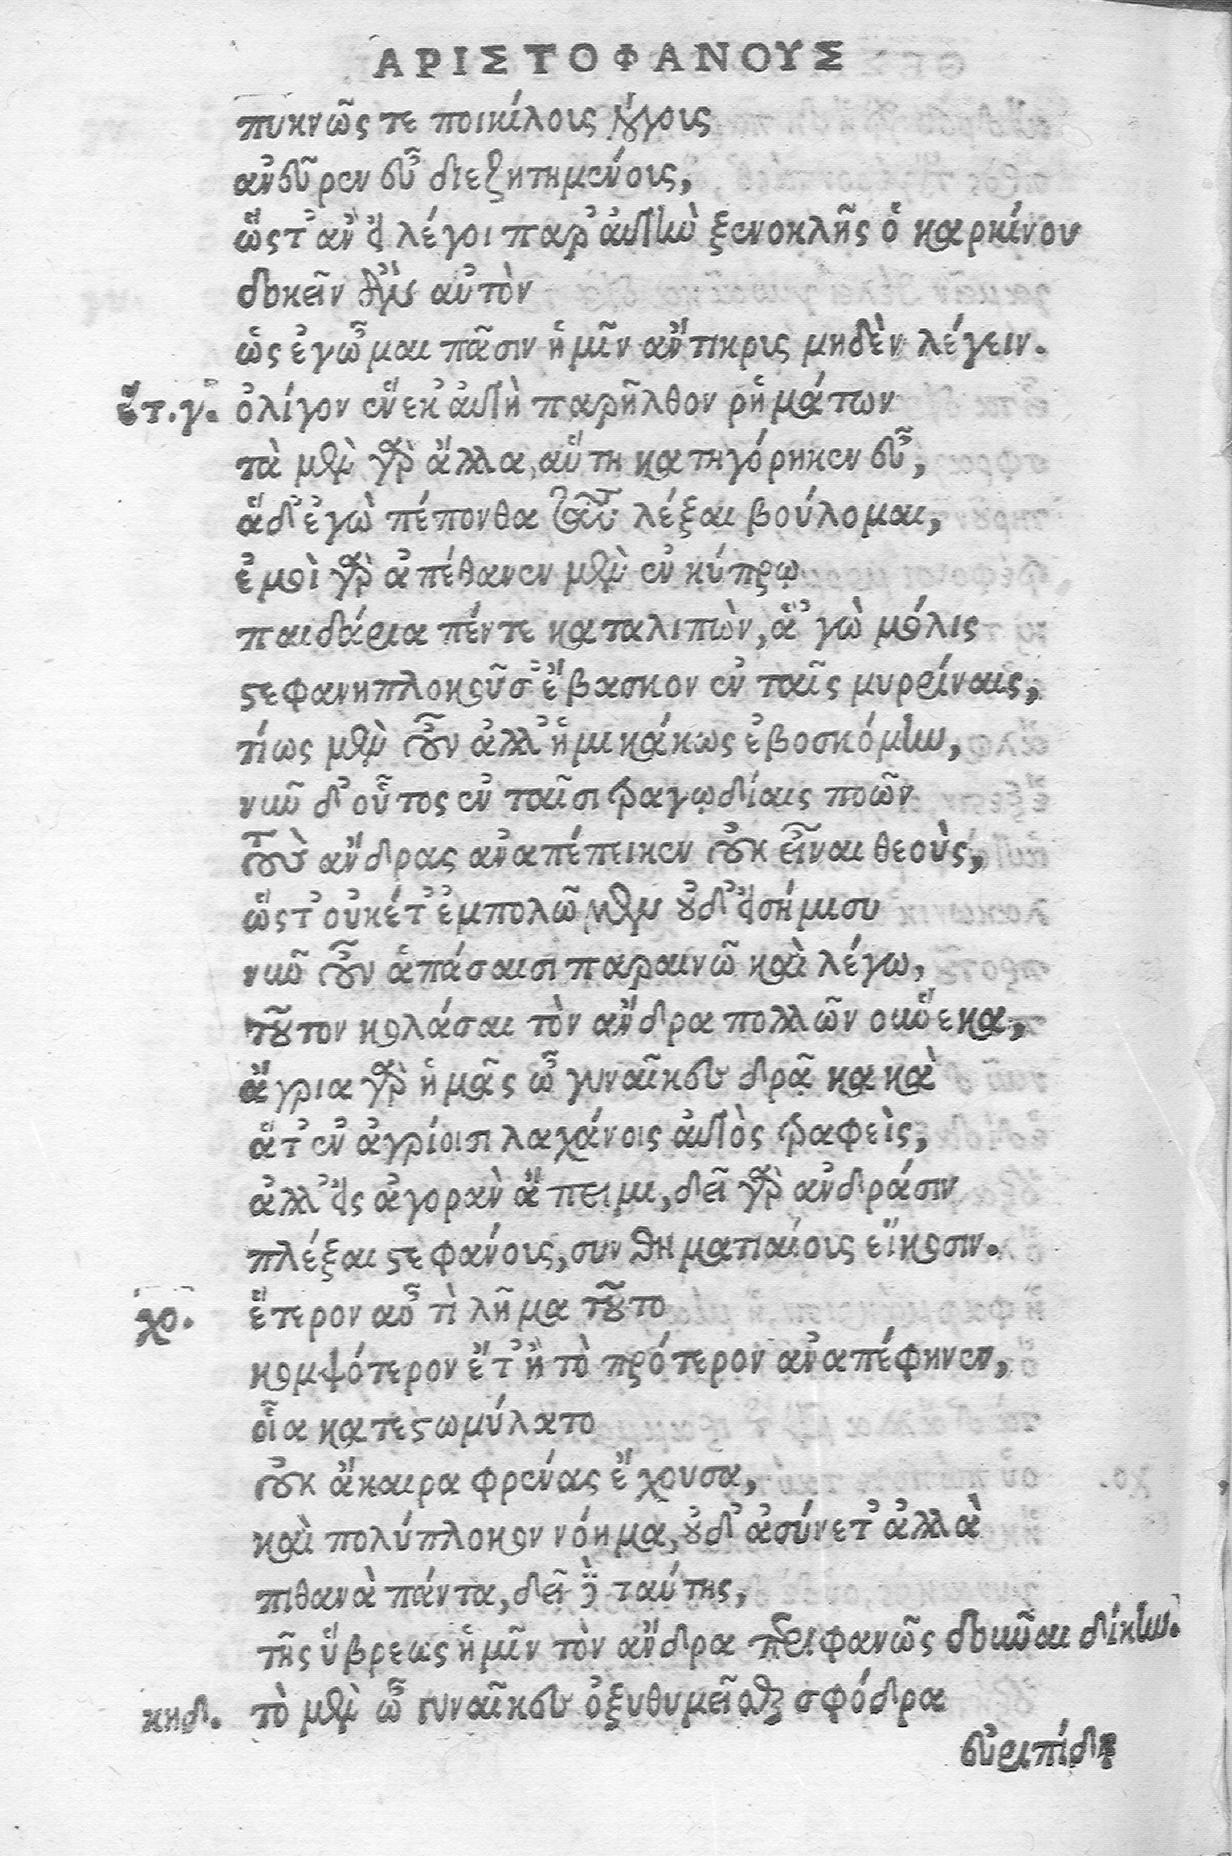 ΑΡΙΣΤΟΦΑΝΟΥΣ
πυκνῶς τε ποικίλους λόγους
ἀνεῦρεν εὖ διεζητημένους,
ὥστ' ἂν εἰ λέγοι παρ' αὐτὴν ξενοκλῆς ὁ καρκίνου
δοκεῖν ὑμᾶς αὐτὸν
ὡς ἐγᾦμαι πᾶσιν ἡμῖν ἄντικρις μηδὲν λέγειν.
ἕτ. γ. ὀλίγον ἕνεκ' αὐτὴ παρῆλθον ῥημάτων
τὰ μὲν γὰρ ἄλλα, αὕτη κατηγόρηκεν εὖ,
ἃ δ' ἐγὼ πέπονθα ταῦτα λέξαι βούλομαι,
ἐμοὶ γὰρ ἀπέθανεν μὲν ἐν κύπρῳ
παιδάρια πέντε καταλιπὼν, ἃ 'γὼ μόλις
στεφανηπλοκοῦσ' ἔβασκον ἐν ταῖς μυρρίναις,
τέως μὲν οὖν ἀλλ' ἡμικάκως ἐβοσκόμην,
νῦν δ' οὗτος ἐν ταῖσι τραγῳδίαις ποῶν
τοὺς ἄνδρας ἀναπέπεικεν οὐκ εἶναι θεοὺς,
ὥστ' οὐκέτ' ἐμπολῶμεν οὐδ' εἰς ἥμισυ
νῦν οὖν ἁπάσαισι παραινῶ καὶ λέγω,
τοῦτον κολάσαι τὸν ἄνδρα πολλῶν οὕνεκα,
ἄγρια γὰρ ἡμᾶς ὦ γυναῖκες δρᾷ κακὰ
ἅτ' ἐν ἀγρίοισι λαχάνοις αὐτὸς τραφεὶς,
ἀλλ' εἰς ἀγορὰν ἄπειμι, δεῖ γὰρ ἀνδράσιν
πλέξαι στεφάνους, συνθηματιαίους εἴκοσιν.
χο. ἕτερον αὖ τὶ λῆμα τοῦτο
κομψότερον ἔτ' ἢ τὸ πρότερον ἀναπέφηνεν,
οἷα κατεστωμύλατο
οὐκ ἄκαιρα φρένας ἔχουσα,
καὶ πολύπλοκον νόημα, οὐδ' ἀσύνετ' ἀλλὰ
πιθανὰ πάντα, δεῖ δὲ ταύτης,
τῆς ὕβρεως ἡμῖν τὸν ἄνδρα περιφανῶς δοῦναι δίκην.
κηδ. τὸ μὲν ὦ γυναῖκες ὀξυθυμεῖσθαι σφόδρα
εὐριπίδῃ